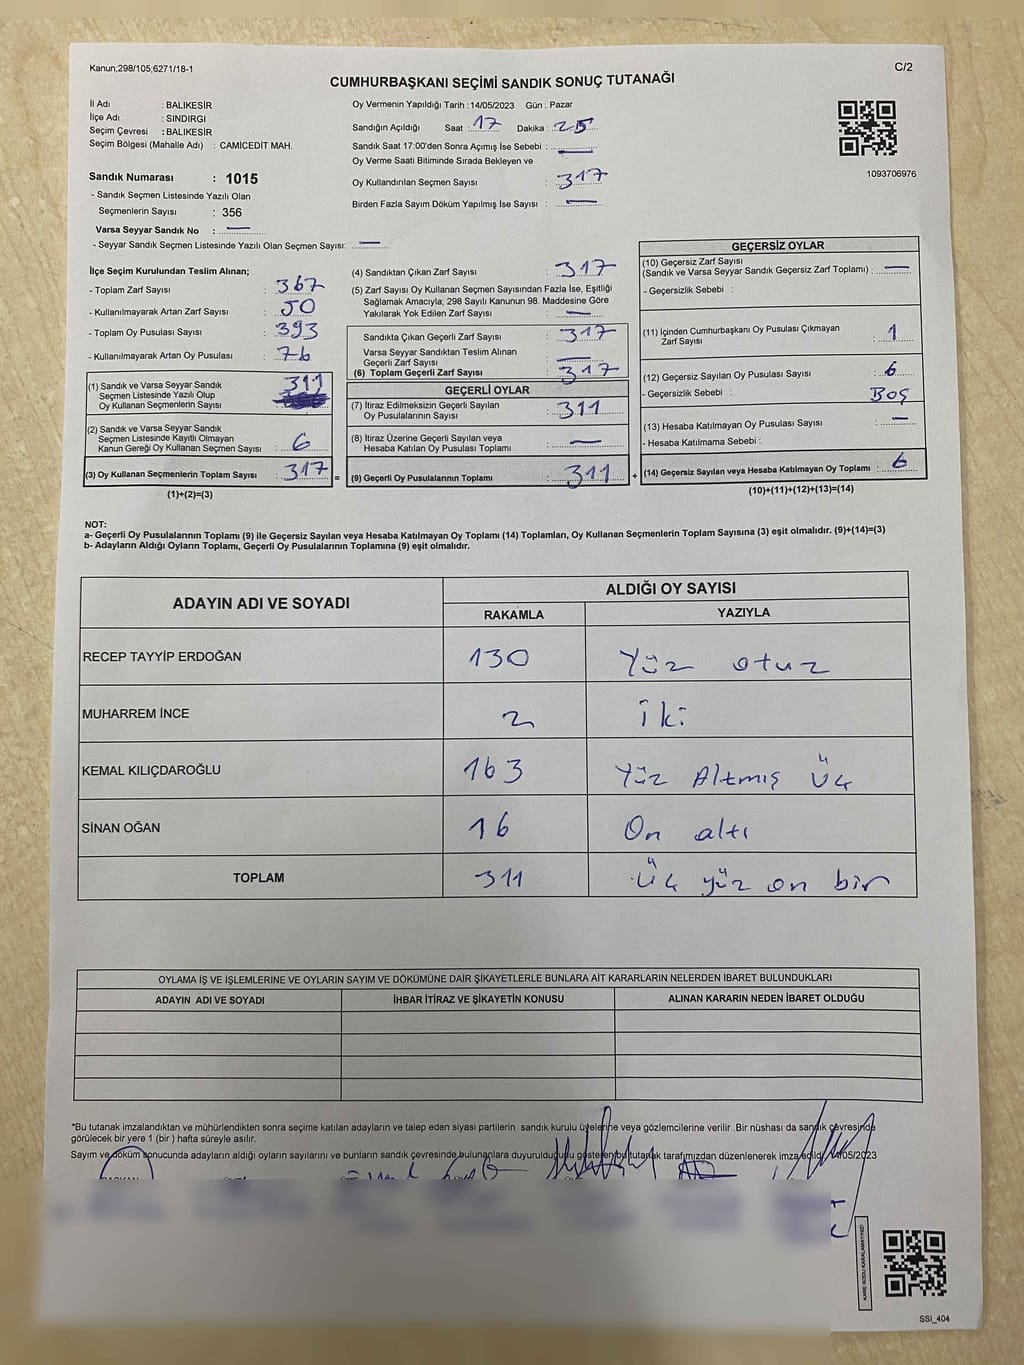 Kanun;298/105;6271/18-1
C/2
CUMHURBAŞKANI SEÇİMİ SANDIK SONUÇ TUTANAĞI
İl Adı : BALIKESİR
İlçe Adı : SINDIRGI
Seçim Çevresi : BALIKESİR
Seçim Bölgesi (Mahalle Adı) : CAMİCEDİT MAH.
Sandık Numarası : 1015
- Sandık Seçmen Listesinde Yazılı Olan
Seçmenlerin Sayısı : 356
Varsa Seyyar Sandık No : —
- Seyyar Sandık Seçmen Listesinde Yazılı Olan Seçmen Sayısı: —
Oy Vermenin Yapıldığı Tarih :14/05/2023 Gün : Pazar
Sandığın Açıldığı Saat : 17 Dakika : 25
Sandık Saat 17:00'den Sonra Açımış İse Sebebi : —
Oy Verme Saati Bitiminde Sırada Bekleyen ve
Oy Kullandırılan Seçmen Sayısı : 317
Birden Fazla Sayım Döküm Yapılmış İse Sayısı : —
1093706976
İlçe Seçim Kurulundan Teslim Alınan;
- Toplam Zarf Sayısı : 367
- Kullanılmayarak Artan Zarf Sayısı : 50
- Toplam Oy Pusulası Sayısı : 393
- Kullanılmayarak Artan Oy Pusulası : 76
(1) Sandık ve Varsa Seyyar Sandık
Seçmen Listesinde Yazılı Olup
Oy Kullanan Seçmenlerin Sayısı : 311
(2) Sandık ve Varsa Seyyar Sandık
Seçmen Listesinde Kayıtlı Olmayan
Kanun Gereği Oy Kullanan Seçmen Sayısı : 6
(3) Oy Kullanan Seçmenlerin Toplam Sayısı : 317 =
(1)+(2)=(3)
(4) Sandıktan Çıkan Zarf Sayısı : 317
(5) Zarf Sayısı Oy Kullanan Seçmen Sayısından Fazla İse, Eşitliği
Sağlamak Amacıyla; 298 Sayılı Kanunun 98. Maddesine Göre
Yakılarak Yok Edilen Zarf Sayısı : —
Sandıkta Çıkan Geçerli Zarf Sayısı : 317
Varsa Seyyar Sandıktan Teslim Alınan
Geçerli Zarf Sayısı : —
(6) Toplam Geçerli Zarf Sayısı : 317
GEÇERLİ OYLAR
(7) İtiraz Edilmeksizin Geçerli Sayılan
Oy Pusulalarının Sayısı : 311
(8) İtiraz Üzerine Geçerli Sayılan veya
Hesaba Katılan Oy Pusulası Toplamı : —
(9) Geçerli Oy Pusulalarının Toplamı : 311 +
GEÇERSİZ OYLAR
(10) Geçersiz Zarf Sayısı
(Sandık ve Varsa Seyyar Sandık Geçersiz Zarf Toplamı) : —
- Geçersizlik Sebebi :
(11) İçinden Cumhurbaşkanı Oy Pusulası Çıkmayan
Zarf Sayısı : 1
(12) Geçersiz Sayılan Oy Pusulası Sayısı : 6
- Geçersizlik Sebebi : BOŞ
(13) Hesaba Katılmayan Oy Pusulası Sayısı : —
- Hesaba Katılmama Sebebi :
(14) Geçersiz Sayılan veya Hesaba Katılmayan Oy Toplamı : 6
(10)+(11)+(12)+(13)=(14)
NOT:
a- Geçerli Oy Pusulalarının Toplamı (9) ile Geçersiz Sayılan veya Hesaba Katılmayan Oy Toplamı (14) Toplamları, Oy Kullanan Seçmenlerin Toplam Sayısına (3) eşit olmalıdır. (9)+(14)=(3)
b- Adayların Aldığı Oyların Toplamı, Geçerli Oy Pusulalarının Toplamına (9) eşit olmalıdır.
ADAYIN ADI VE SOYADI
ALDIĞI OY SAYISI
RAKAMLA YAZIYLA
RECEP TAYYİP ERDOĞAN 130 Yüz otuz
MUHARREM İNCE 2 İki
KEMAL KILIÇDAROĞLU 163 Yüz Altmış Üç
SİNAN OĞAN 16 On altı
TOPLAM 311 Üç yüz on bir
OYLAMA İŞ VE İŞLEMLERİNE VE OYLARIN SAYIM VE DÖKÜMÜNE DAİR ŞİKAYETLERLE BUNLARA AİT KARARLARIN NELERDEN İBARET BULUNDUKLARI
ADAYIN ADI VE SOYADI İHBAR İTİRAZ VE ŞİKAYETİN KONUSU ALINAN KARARIN NEDEN İBARET OLDUĞU
*Bu tutanak imzalandıktan ve mühürlendikten sonra seçime katılan adayların ve talep eden siyasi partilerin sandık kurulu üyelerine veya gözlemcilerine verilir .Bir nüshası da sandık çevresinde
görülecek bir yere 1 (bir ) hafta süreyle asılır.
Sayım ve döküm sonucunda adayların aldığı oyların sayılarını ve bunların sandık çevresinde bulunanlara duyurulduğunu gösteren bu tutanak tarafımızdan düzenlenerek imza edildi. 14/05/2023
KARE KODU KARALAMAYINIZ!
SSI_404